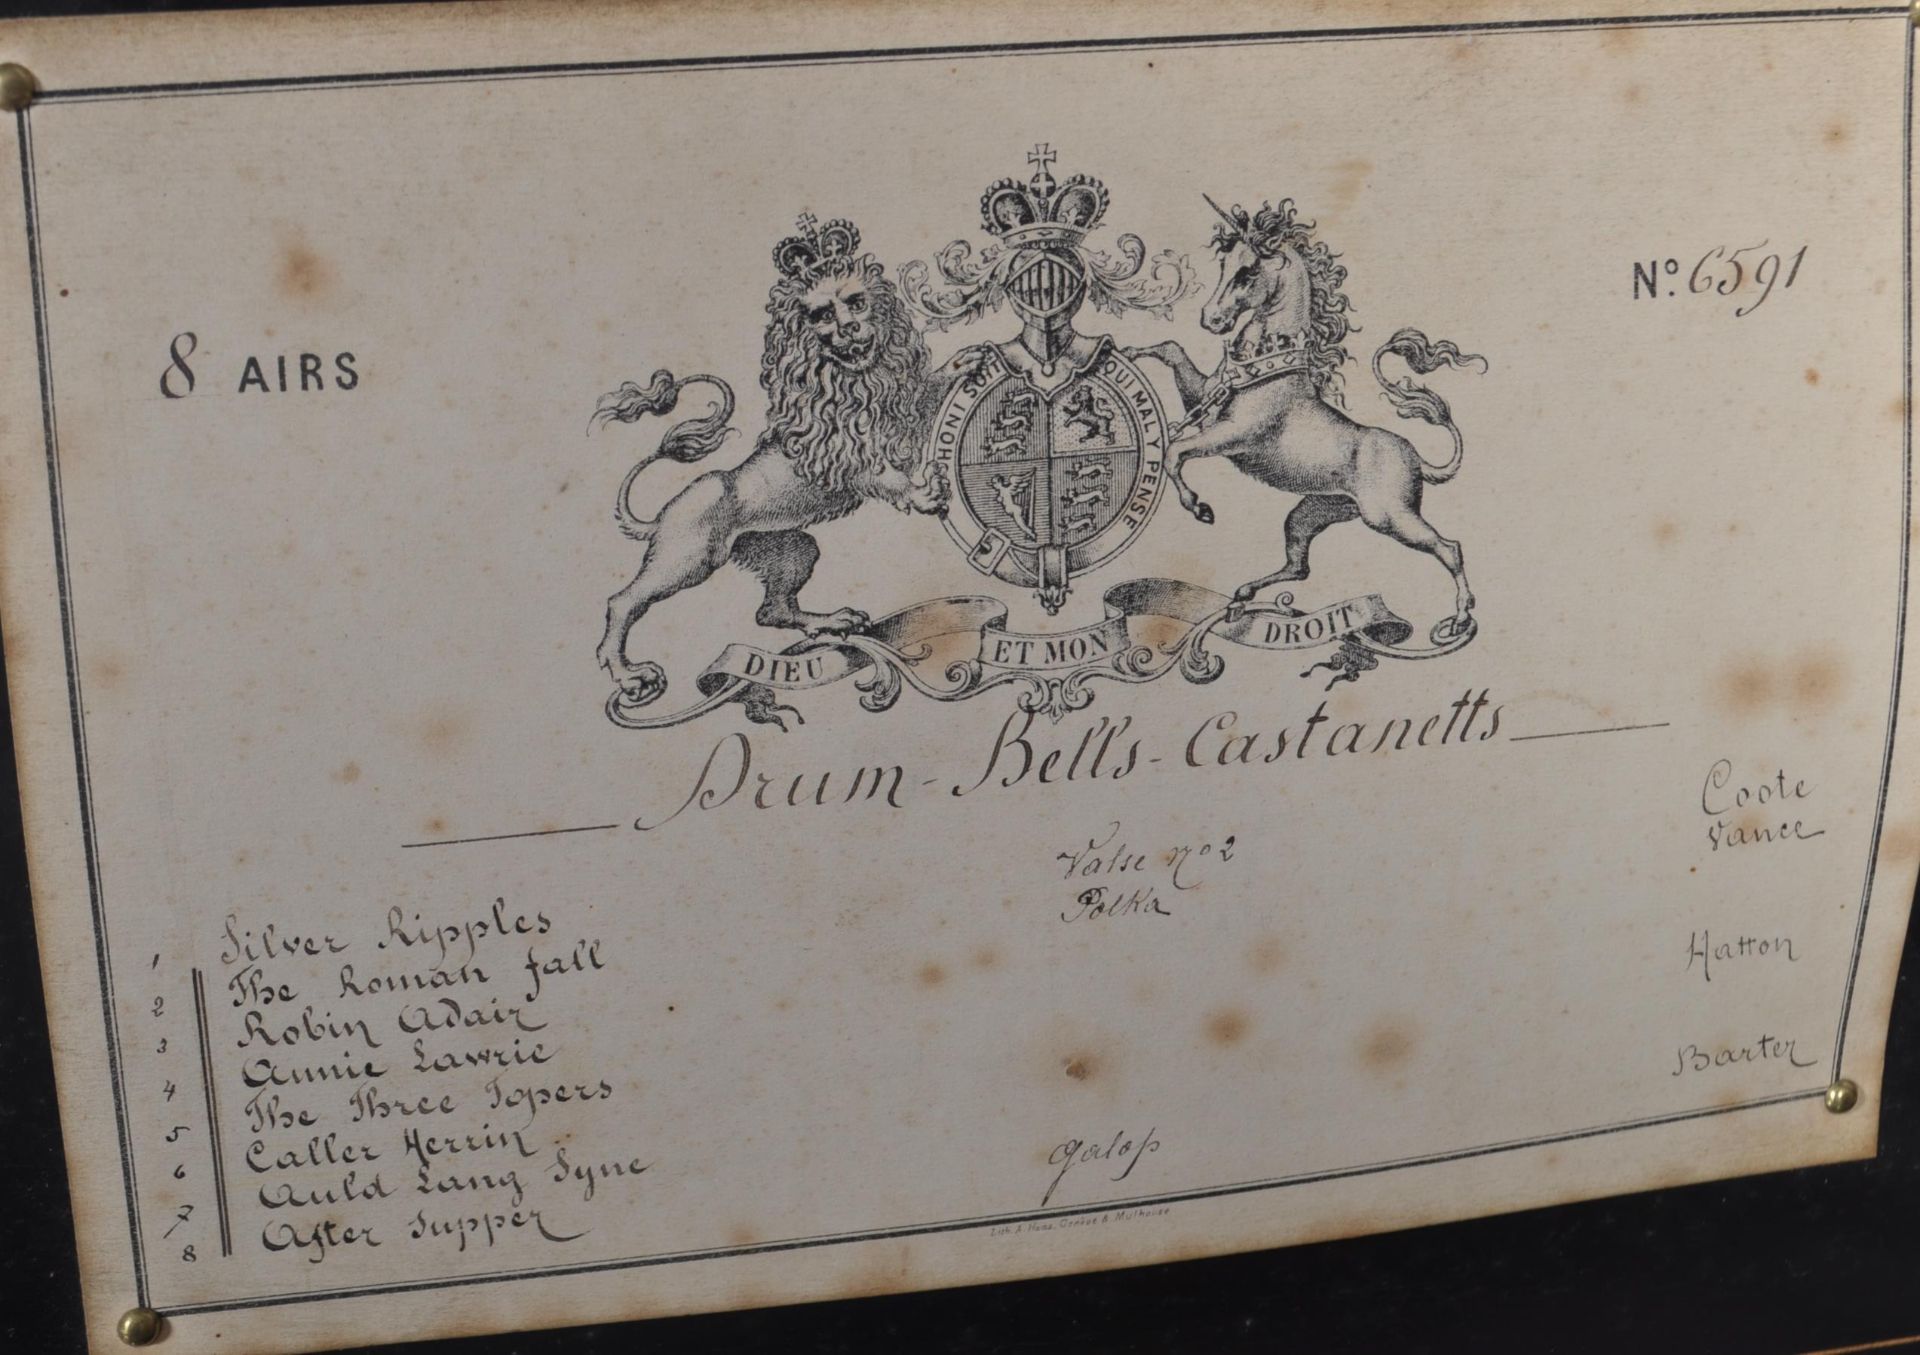 8 AIRS
Nº. 6591
HONI SOIT QUI MAL Y PENSE
DIEU ET MON DROIT
Drum - Bells - Castanetts
1 Silver Ripples Valse nº 2 Coote
2 The Roman fall Polka Vance
3 Robin Adair
4 Annie Lawrie
5 The Three Topers Hatton
6 Caller Herrin
7 Auld Lang Syne
8 After Supper galop Barter
Lith. A. Haas, Genève & Mulhouse